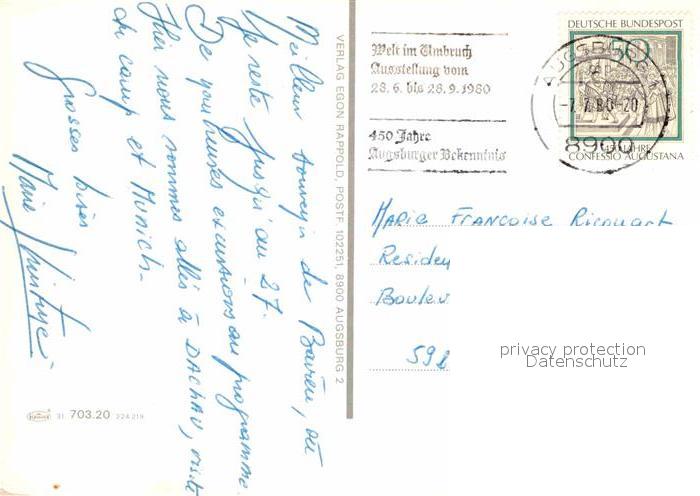 Meilleur souvenir de Bavière, où
je reste jusqu'au 27.
De nombreuses excursions au programme.
Hier nous sommes allés à DACHAU, visite
du camp et Munich.
Grosses bises
Marie
VERLAG EGON RAPPOLD, POSTF. 102251, 8900 AUGSBURG 2
31 703.20 224 219
Welt im Umbruch
Ausstellung vom
28. 6. bis 28. 9. 1980
450 Jahre
Augsburger Bekenntnis
DEUTSCHE BUNDESPOST
50
AUGSBURG
-7.7.80-20
8900
450 JAHRE
CONFESSIO AUGUSTANA
MARIE FRANCOISE
Residen
Boulev
59
privacy protection
Datenschutz